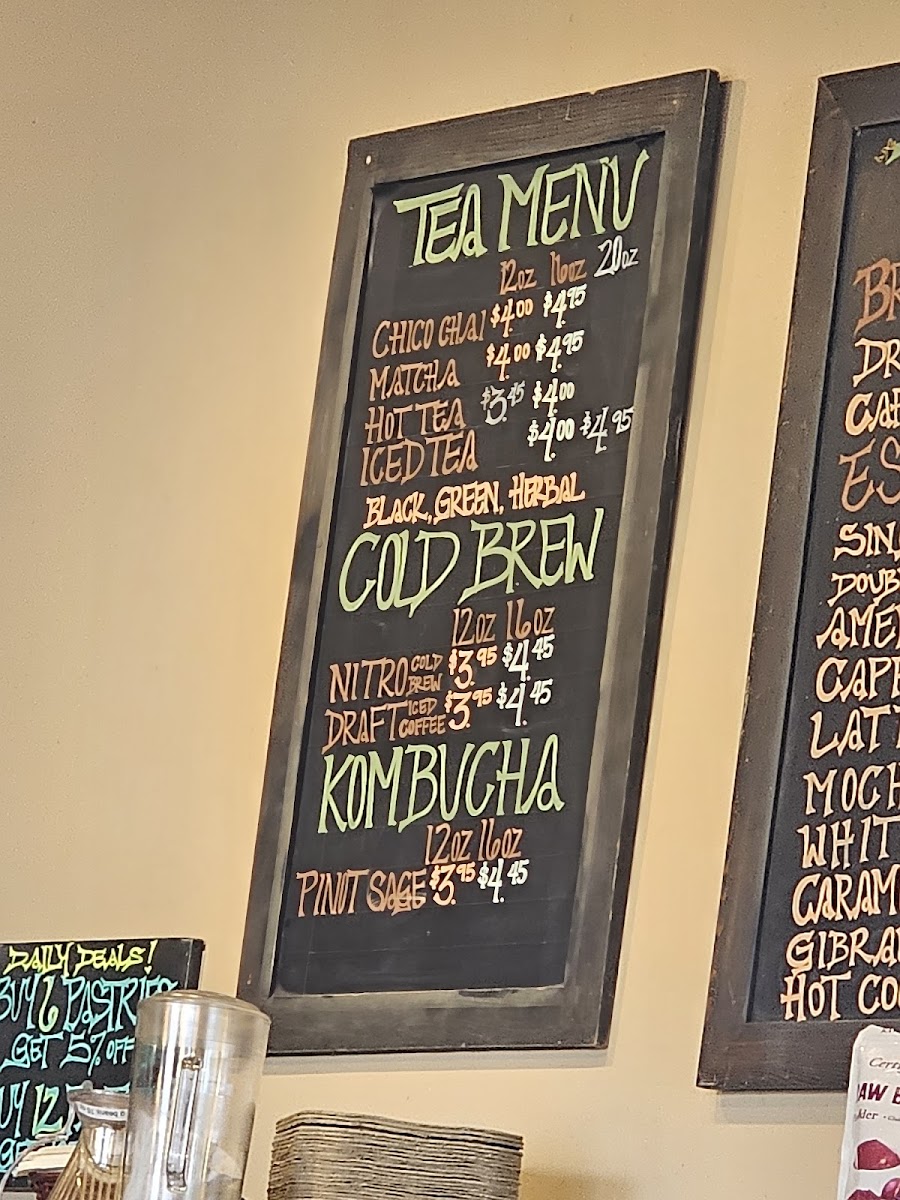 TEA MENU
12OZ 16OZ 20OZ
CHICO CHAI $4.00 $4.95
MATCHA $4.00 $4.95
HOT TEA $3.45 $4.00
ICED TEA $4.00 $4.95
BLACK, GREEN, HERBAL
COLD BREW
12OZ 16OZ
NITRO COLD BREW $3.95 $4.45
DRAFT ICED COFFEE $3.95 $4.45
KOMBUCHA
12OZ 16OZ
PINOT SAGE $3.95 $4.45
DAILY DEALS!
BUY 6 PASTRIES
GET 5% OFF
12
ES
SIN
DOUB
AME
CAPP
LATT
MOCH
WHIT
CARAM
GIBRA
HOT CO